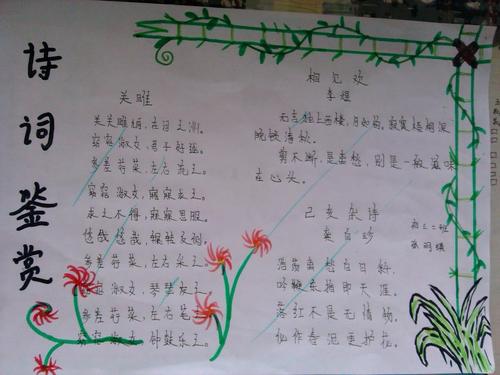 诗词鉴赏
关雎
关关雎鸠,在河之洲。
窈窕淑女,君子好逑。
参差荇菜,左右流之。
窈窕淑女,寤寐求之。
求之不得,寤寐思服。
悠哉悠哉,辗转反侧。
参差荇菜,左右采之。
窈窕淑女,琴瑟友之。
参差荇菜,左右芼之。
窈窕淑女,钟鼓乐之。
相见欢
李煜
无言独上西楼,月如钩,寂寞梧桐深
院锁清秋。
剪不断,是离愁,别是一般滋味
在心头。
己亥杂诗
龚自珍
浩荡离愁白日斜,
吟鞭东指即天涯。
落红不是无情物,
化作春泥更护花。
初三二班